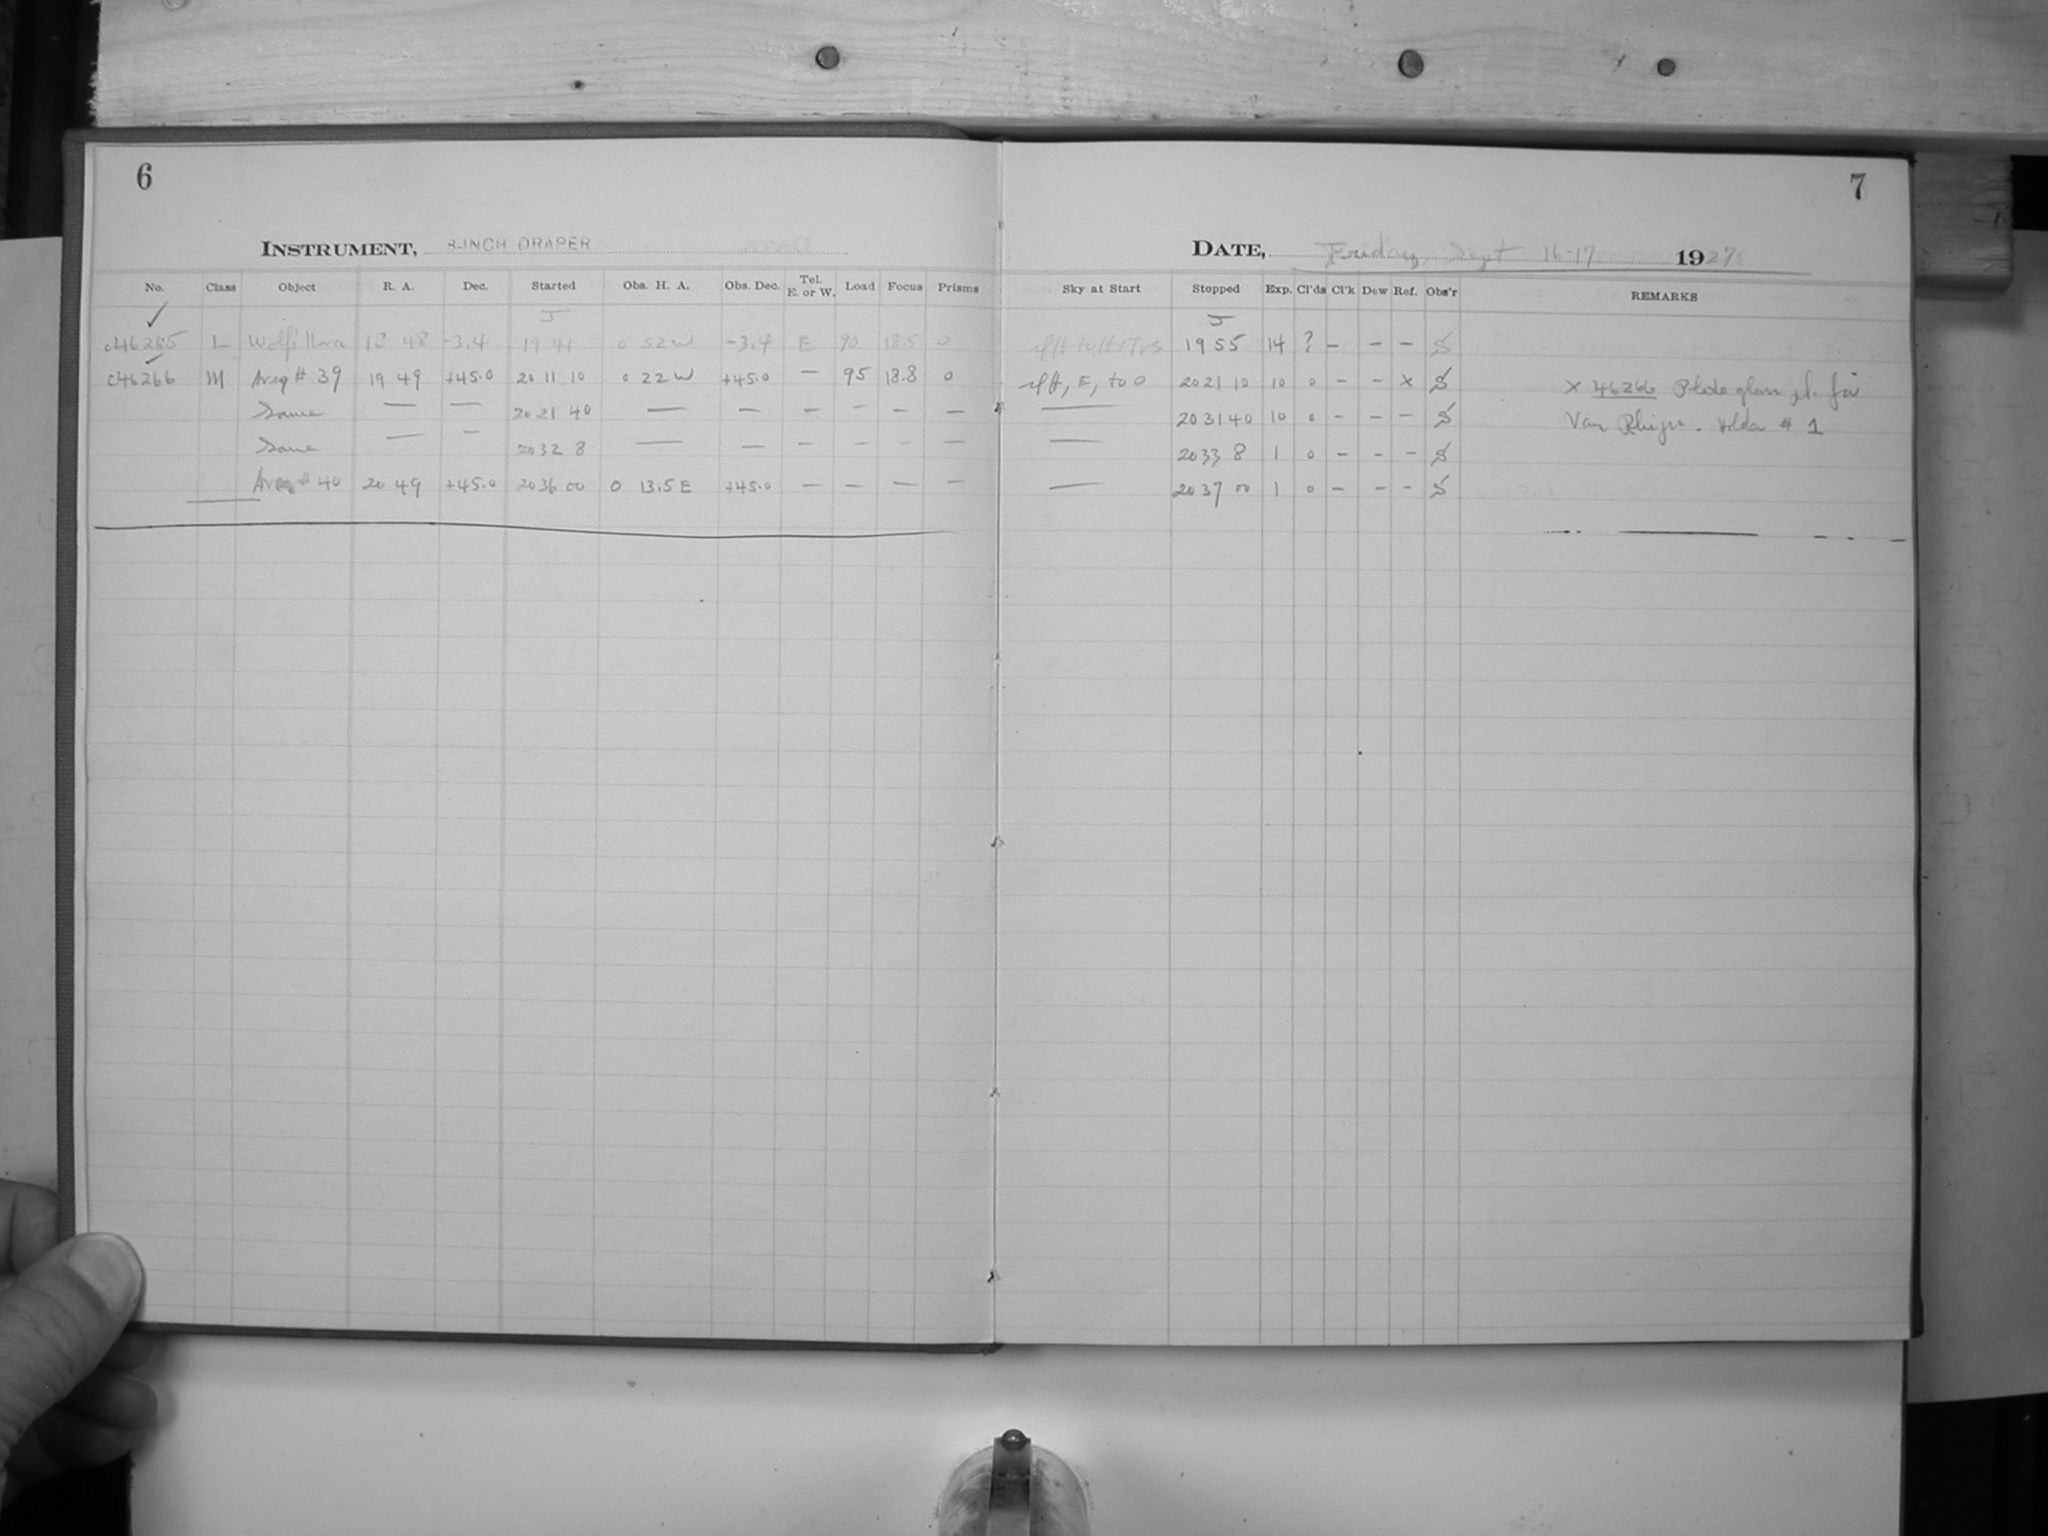 6
INSTRUMENT, 8-INCH DRAPER
No. Class Object R. A. Dec. Started Obs. H. A. Obs. Dec. Tel. E. or W. Load Focus Prisms
c46265 L Wolf's Nova 18 48 -3.4 19 41 0 52 W -3.4 E 90 18.5 0
c46266 M Area # 39 19 49 +45.0 20 11 10 0 22 W +45.0 — 95 18.8 0
Same — — 20 21 40 — — — — — —
Same — — 20 32 8 — — — — — —
Area # 40 20 49 +45.0 20 36 00 0 13.5 E +45.0 — — — —
7
DATE, Friday, Sept 16-17 1927
Sky at Start Stopped Exp. Cl'ds Cl'k Dew Ref. Obs'r REMARKS
19 55 14 ? – – –
E, to 0 20 21 10 10 0 – – x x 46266 Plate glass pl. for
— 20 31 40 10 0 – – – Van Rhijn. Holder # 1
— 20 33 8 1 0 – – –
— 20 37 00 1 0 – – –